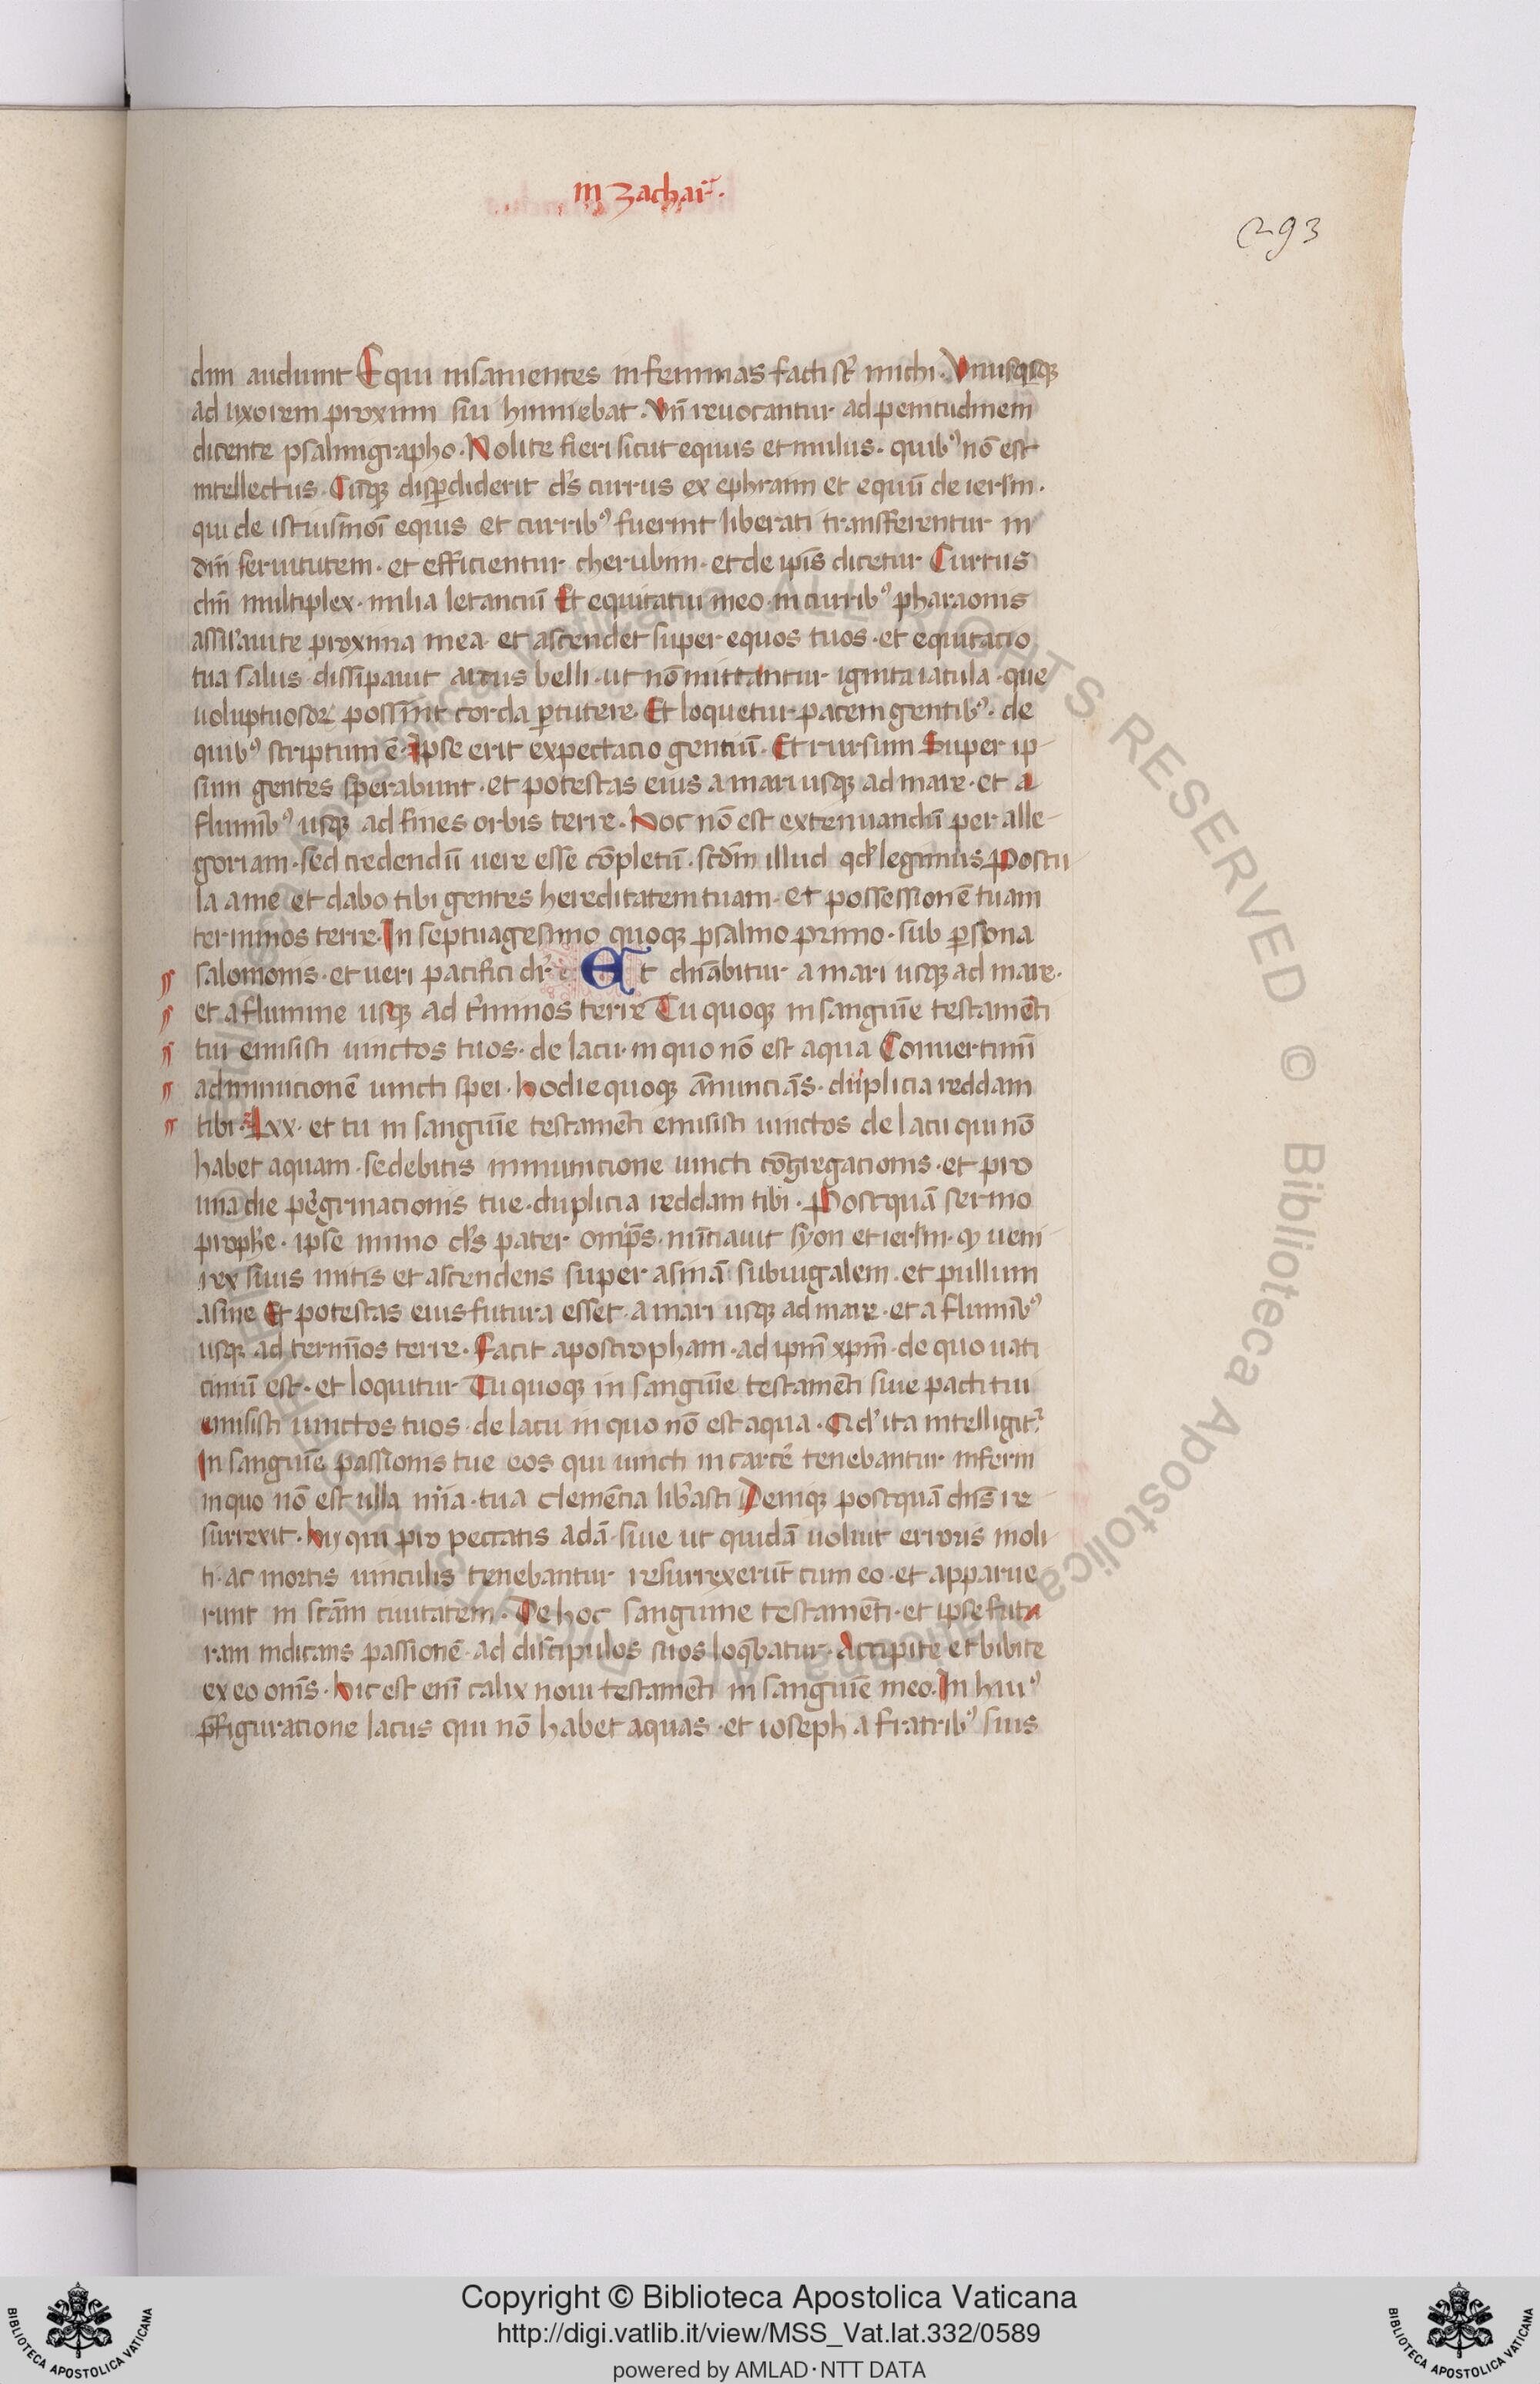 in zachar̄.
293
dnī audiunt Equi insanientes in feminas facti st̄ michi. Vnusqsqꝫ
ad uxorem proximi sui hinniebat. Vn̄ reuocantur ad penitudinem
dicente psalmigrapho. Nolite fieri sicut equus et mulus. quibꝰ nō est
intellectus. Cūqꝫ disꝑdiderit ds̄ currus ex ephraim et equū de ierlm̄.
qui de istiusmōi equis et curribꝰ fuerint liberati transferentur in
dnī seruitutem. et efficientur cherubim. et de ipīs dicetur Currus
dnī multiplex. milia letanciū Et equitatui meo. in curribꝰ pharaonis
assil̓aui te proxima mea. et ascendet super equos tuos. et equitacio
tua salus. dissipauit arcus belli. ut nō mittantur ignita iacula. que
uoluptuosoꝝ possint corda ꝑcutere. Et loquetur pacem gentibꝰ. de
quibꝰ scriptum ē. Ipse erit expectacio gentiū. Et rursum Super ip-
sum gentes sperabunt. et potestas eius a mari usqꝫ ad mare. et a
fluminibꝰ usqꝫ ad fines orbis terre. Hoc nō est extenuandū per alle-
goriam. sed credendū uere esse cōpletū. scdm̄ illud qd̓ legimus Postu
la a me et dabo tibi gentes hereditatem tuam. et possessionē tuam
terminos terre. In septuagesimo quoqꝫ psalmo primo. sub ꝑsona
salomonis. et ueri pacifici dr̄ Et dnābitur a mari usqꝫ ad mare.
et a flumine usqꝫ ad t̓minos terre Tu quoqꝫ in sanguīe testamēti
tui emisisti uinctos tuos. de lacu. in quo nō est aqua Conuertimī
ad municionē uincti spei. hodie quoqꝫ ānuncians. duplicia reddam
tibi. Lxx. et tu in sanguīe testamēti emisisti uinctos de lacu qui nō
habet aquam. sedebitis in municione uincti cōgregacionis. et pro
una die pēgrinacionis tue. duplicia reddam tibi. Postquā sermo
prophē. ipse immo ds̄ pater omps̄. nūciauit syon et ierlm̄. ꝙ ueni
rex suus mitis et ascendens super asinā subiugalem. et pullum
asine Et potestas eius futura esset. a mari usqꝫ ad mare. et a flumībꝰ
usqꝫ ad termīos terre. Facit apostropham. ad ipm̄ xpm̄. de quo uati
ciniū est. et loquitur Tu quoqꝫ in sanguīe testamēti siue pacti tui
emisisti uinctos tuos. de lacu in quo nō est aqua. Qd̓ ita intelligit̓.
In sanguīe passionis tue eos qui uincti in carcē tenebantur inferni
in quo nō est ulla mīa. tua clemēcia lib̓asti Deniqꝫ postquā dns̄ re-
surrexit. hij qui pro peccatis adā. siue ut quidā uolūt erroris moli
ti. ac mortis uinculis tenebantur resurrexerūt cum eo. et apparue
runt in scām ciuitatem. De hoc sanguine testamēti. et ipse futu
ram indicans passionē. ad discipulos suos loq̄batur. Accipite et bibite
ex eo omīs. hic est enī calix noui testamēti in sanguīe meo. In huiꝰ
p̄figuratione lacus qui nō habet aquas. et ioseph a fratribꝰ suis
DIGITA VATICANA ALL RIGHTS RESERVED © Biblioteca Apostolica Vaticana
Copyright © Biblioteca Apostolica Vaticana
http://digi.vatlib.it/view/MSS_Vat.lat.332/0589
powered by AMLAD·NTT DATA
BIBLIOTECA APOSTOLICA VATICANA
BIBLIOTECA APOSTOLICA VATICANA